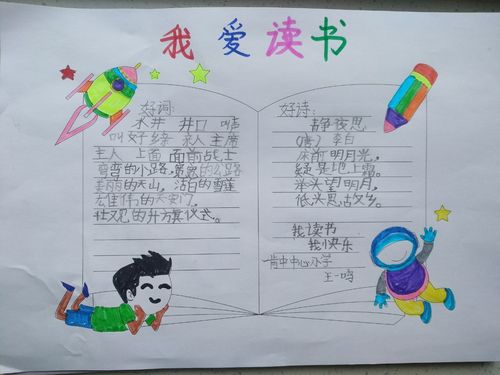 我爱读书
好词:
水井 井口
叫 乡亲 亲人 主席
主人 上面 面前 战士
弯弯的小路,宽宽的公路
美丽的天山,洁白的雪莲
宏伟的天安门,
壮观的升旗仪式。
好诗:
静夜思
(唐) 李白
床前明月光,
疑是地上霜。
举头望明月,
低头思故乡。
我读书
我快乐
肯中中心小学
王一鸣